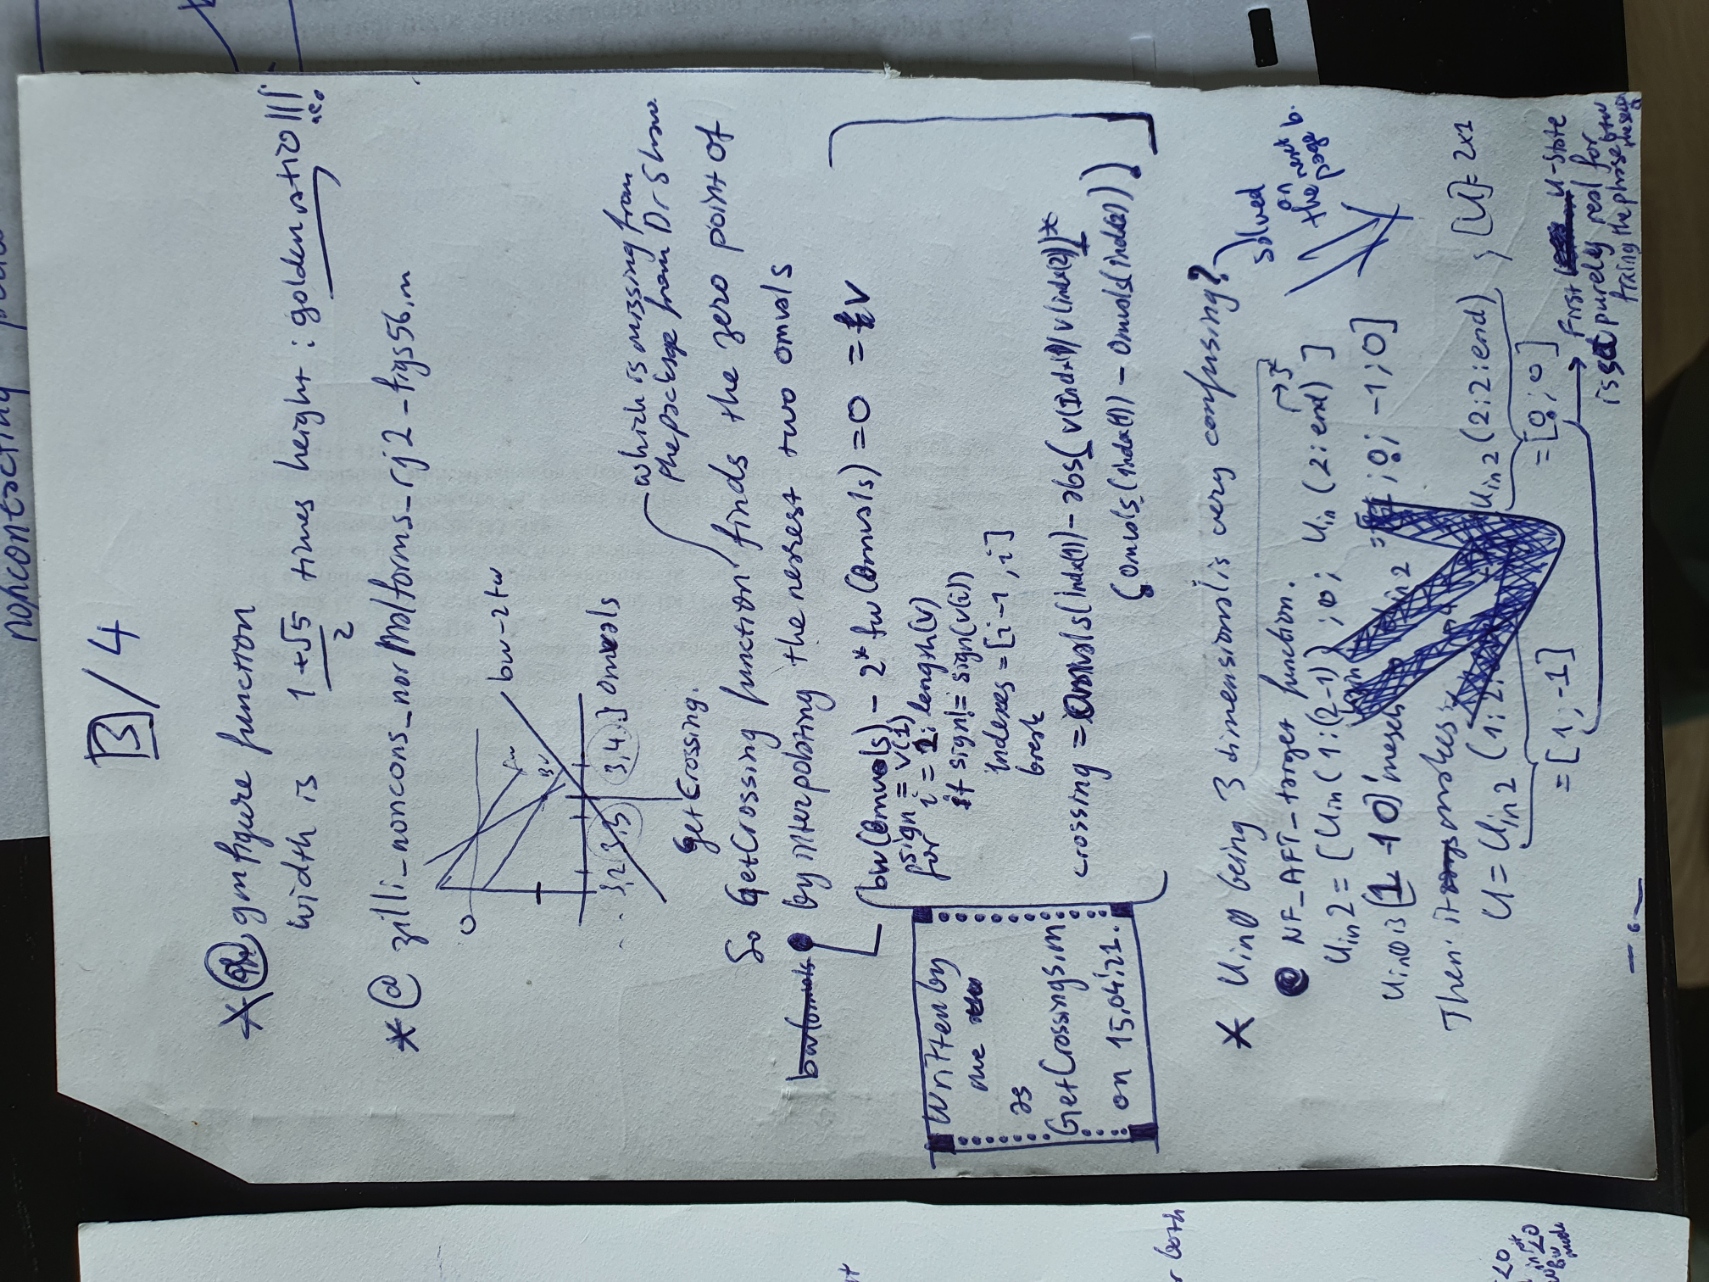 noncontacting
3 / 4
* @ gmfigure function
width is 1+√5 / 2 times height : golden ratio!!!
* @ zilli_noncons_normalforms_rj2_figs56.m
0
fw
bw-2fw
Bw
3,2 3,3 3,4 ] omvals
GetCrossing.
which is missing from
the package from Dr Shaw.
So GetCrossing function finds the zero point of
bw(omvals by interpolating the nearest two omvals
bw(omvals) - 2* fw(omvals) = 0 = v
sign = v(1)
for i = 2: length(v)
if sign != sign(v(i))
indexes = [i-1, i]
break
crossing = omvals(indx(1)) - abs( v(indx(1)/v(indx(2))*
(omvals(indx(1)) - omvals(indx(2)))
Written by
me
as
GetCrossings.m
on 15.04.21.
* Uin0 being 3 dimensional is very confusing?
solved
on
the next
page b.
@ NF_AFT_target function.
Uin2 = [Uin(1:(2-1)) ; 0 ; Uin(2:end)]
Uin0 is [1 -1 0]' in2 = ; 0; -1; 0]
Then it makes
U = Uin2 (1:2: Uin2(2:2:end) ; [U]= 2x1
= [1; -1] = [0; 0]
First U-state
is set purely real for
fixing the phase btw
- 6 -
r both
<0
<0
Bw
mode